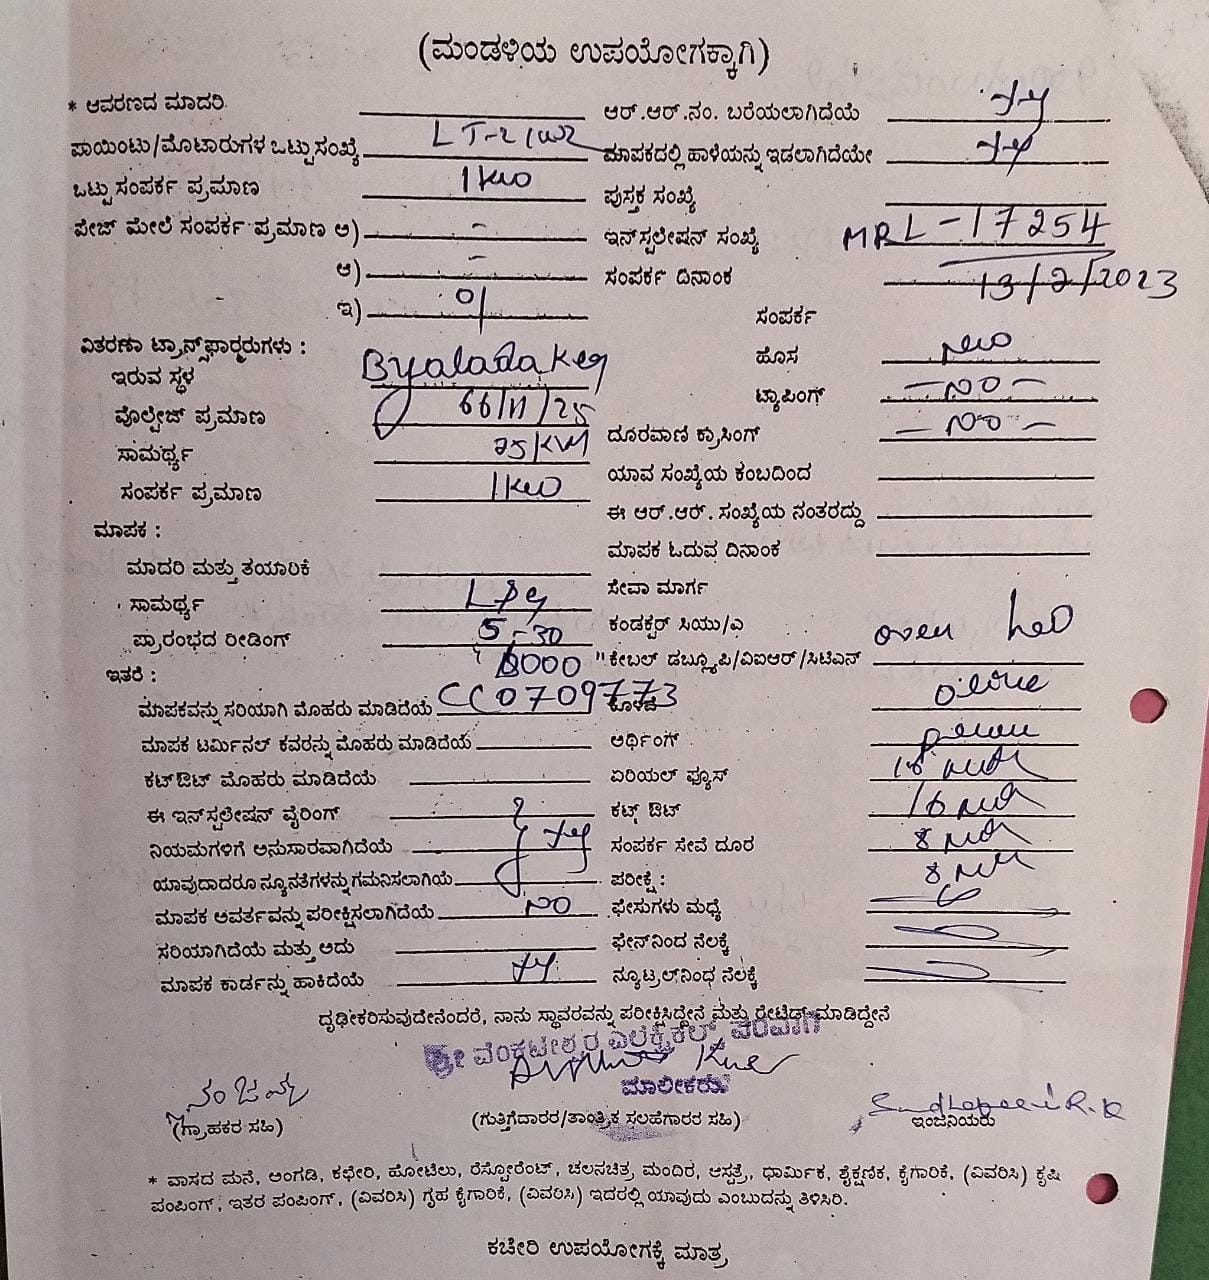 (ಮಂಡಳಿಯ ಉಪಯೋಗಕ್ಕಾಗಿ)
* ಆವರಣದ ಮಾದರಿ
ಪಾಯಿಂಟು/ಮೊಟಾರುಗಳ ಒಟ್ಟು ಸಂಖ್ಯೆ
ಒಟ್ಟು ಸಂಪರ್ಕ ಪ್ರಮಾಣ 1 KW
ಪೇಜ್ ಮೇಲೆ ಸಂಪರ್ಕ ಪ್ರಮಾಣ ಅ) -
ಆ) -
ಇ)
ವಿತರಣಾ ಟ್ರಾನ್ಸ್‌ಫಾರ್‍ಮರುಗಳು :
ಇರುವ ಸ್ಥಳ Byaladakeg
ವೊಲ್ಟೇಜ್ ಪ್ರಮಾಣ 66/11/25
ಸಾಮರ್ಥ್ಯ
ಸಂಪರ್ಕ ಪ್ರಮಾಣ 1 KW
ಮಾಪಕ :
ಮಾದರಿ ಮತ್ತು ತಯಾರಿಕೆ
ಸಾಮರ್ಥ್ಯ
ಪ್ರಾರಂಭದ ರೀಡಿಂಗ್ 5-30
ಇತರೆ :
ಮಾಪಕವನ್ನು ಸರಿಯಾಗಿ ಮೊಹರು ಮಾಡಿದೆಯೆ CC0709773
ಮಾಪಕ ಟರ್ಮಿನಲ್ ಕವರನ್ನು ಮೊಹರು ಮಾಡಿದೆಯೆ
ಕಟ್‌ಔಟ್ ಮೊಹರು ಮಾಡಿದೆಯೆ
ಈ ಇನ್‌ಸ್ಟಲೇಷನ್ ವೈರಿಂಗ್
ನಿಯಮಗಳಿಗೆ ಅನುಸಾರವಾಗಿದೆಯೆ
ಯಾವುದಾದರೂ ನ್ಯೂನತೆಗಳನ್ನು ಗಮನಿಸಲಾಗಿಯೆ
ಮಾಪಕ ಆವರ್ತವನ್ನು ಪರೀಕ್ಷಿಸಲಾಗಿದೆಯೆ NO
ಸರಿಯಾಗಿದೆಯೆ ಮತ್ತು ಅದು
ಮಾಪಕ ಕಾರ್ಡನ್ನು ಹಾಕಿದೆಯೆ
ಆರ್.ಆರ್.ನಂ. ಬರೆಯಲಾಗಿದೆಯೆ
ಮಾಪಕದಲ್ಲಿ ಹಾಳೆಯನ್ನು ಇಡಲಾಗಿದೆಯೇ
ಪುಸ್ತಕ ಸಂಖ್ಯೆ
ಇನ್‌ಸ್ಟಲೇಷನ್ ಸಂಖ್ಯೆ MRL-17254
ಸಂಪರ್ಕ ದಿನಾಂಕ 13/2/2023
ಸಂಪರ್ಕ
ಹೊಸ New
ಟ್ಯಾಪಿಂಗ್ - NO -
ದೂರವಾಣಿ ಕ್ರಾಸಿಂಗ್ - NO -
ಯಾವ ಸಂಖ್ಯೆಯ ಕಂಬದಿಂದ
ಈ ಆರ್.ಆರ್. ಸಂಖ್ಯೆಯ ನಂತರದ್ದು
ಮಾಪಕ ಓದುವ ದಿನಾಂಕ
ಸೇವಾ ಮಾರ್ಗ
ಕಂಡಕ್ಟರ್ ಸಿಯು/ಎ
ಕೇಬಲ್ ಡಬ್ಲ್ಯೂಪಿ/ವಿಐಆರ್/ಸಿಟಿಎಸ್
ಅರ್ಥಿಂಗ್
ಏರಿಯಲ್ ಫ್ಯೂಸ್
ಕಟ್ಸ್ ಔಟ್
ಸಂಪರ್ಕ ಸೇವೆ ದೂರ
ಪರೀಕ್ಷೆ :
ಫೇಸುಗಳು ಮಧ್ಯೆ
ಫೇಸ್‌ನಿಂದ ನೆಲಕ್ಕೆ
ನ್ಯೂಟ್ರಲ್‌ನಿಂಧ ನೆಲಕ್ಕೆ
ದೃಢೀಕರಿಸುವುದೇನೆಂದರೆ, ನಾನು ಸ್ಥಾವರವನ್ನು ಪರೀಕ್ಷಿಸಿದ್ದೇನೆ ಮತ್ತು ರೇಟೆಡ್ ಮಾಡಿದ್ದೇನೆ
ಶ್ರೀ ವೆಂಕಟೇಶ್ವರ ಎಲೆಕ್ಟ್ರಿಕಲ್ಸ್
ಮಾಲೀಕರು
(ಗ್ರಾಹಕರ ಸಹಿ)
(ಗುತ್ತಿಗೆದಾರರ/ತಾಂತ್ರಿಕ ಸಲಹೆಗಾರರ ಸಹಿ)
ಇಂಜಿನಿಯರು
* ವಾಸದ ಮನೆ, ಅಂಗಡಿ, ಕಛೇರಿ, ಹೋಟೆಲು, ರೆಸ್ಟೋರೆಂಟ್, ಚಲನಚಿತ್ರ ಮಂದಿರ, ಆಸ್ಪತ್ರೆ, ಧಾರ್ಮಿಕ, ಶೈಕ್ಷಣಿಕ, ಕೈಗಾರಿಕೆ, (ವಿವರಿಸಿ) ಕೃಷಿ
ಪಂಪಿಂಗ್, ಇತರ ಪಂಪಿಂಗ್, (ವಿವರಿಸಿ) ಗೃಹ ಕೈಗಾರಿಕೆ, (ವಿವರಿಸಿ) ಇದರಲ್ಲಿ ಯಾವುದು ಎಂಬುದನ್ನು ತಿಳಿಸಿರಿ.
ಕಚೇರಿ ಉಪಯೋಗಕ್ಕೆ ಮಾತ್ರ